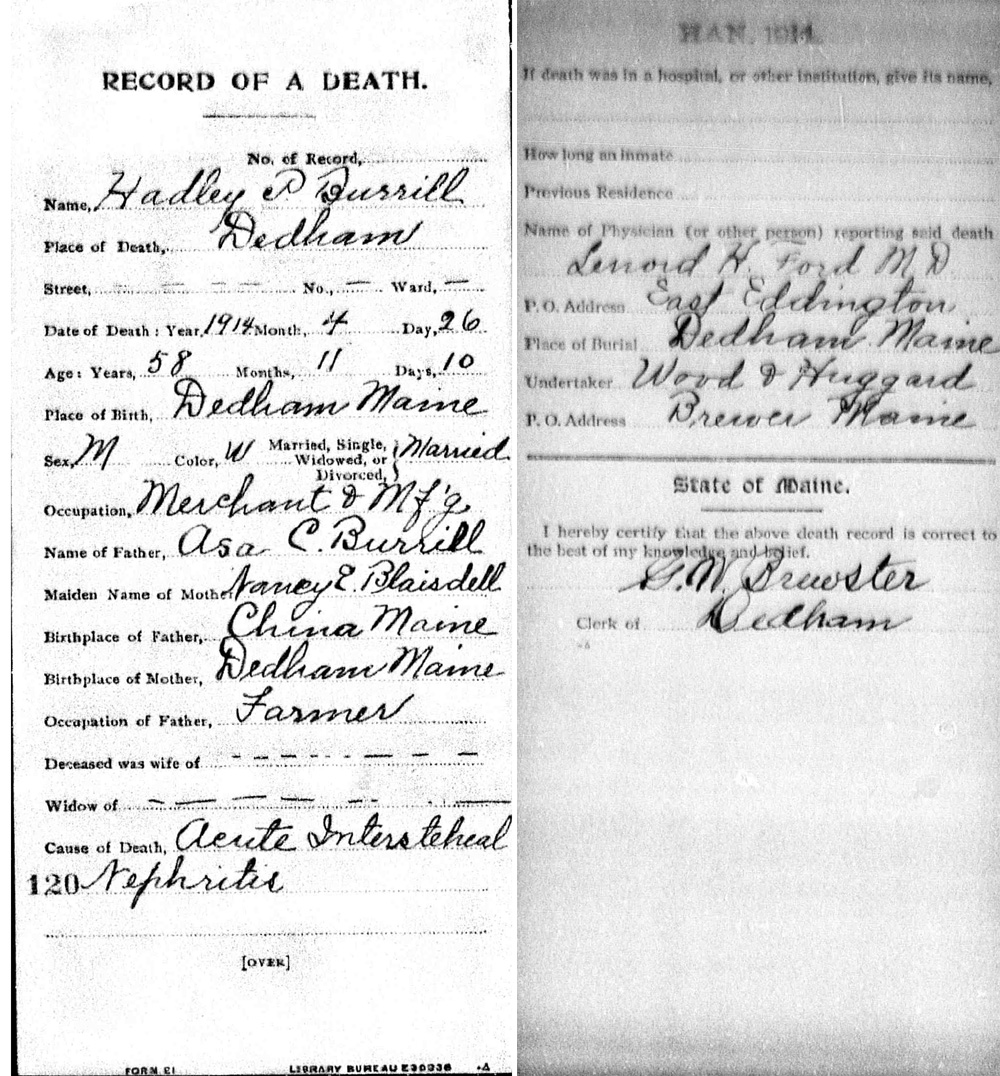 RECORD OF A DEATH.
No. of Record,
Name, Hadley P Burrill
Place of Death, Dedham
Street, — — — — No., — Ward, —
Date of Death: Year, 1914 Month, 4 Day, 26
Age: Years, 58 Months, 11 Days, 10
Place of Birth, Dedham Maine
Sex, M Color, W Married, Single, Widowed, or Divorced, } Married
Occupation, Merchant & Mf'g
Name of Father, Asa C. Burrill
Maiden Name of Mother Nancy E. Blaisdell
Birthplace of Father, China Maine
Birthplace of Mother, Dedham Maine
Occupation of Father, Farmer
Deceased was wife of – – – – – — – –
Widow of – — — — – – —
Cause of Death, Acute Intersteheal
120 Nephritis
[OVER]
FORM E1 LIBRARY BUREAU E30336
1914.
If death was in a hospital, or other institution, give its name,
How long an inmate
Previous Residence
Name of Physician (or other person) reporting said death
Lenord H. Ford M D
P. O. Address East Eddington
Place of Burial Dedham Maine
Undertaker Wood & Huggard
P. O. Address Brewer Maine
State of Maine.
I hereby certify that the above death record is correct to
the best of my knowledge and belief.
G. W. Brewster
Clerk of Dedham